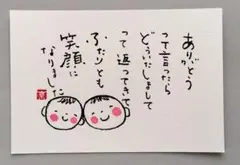 ありがとう
って言ったら
どういたしまして
って返ってきて
ふたりとも
笑顔に
なりました